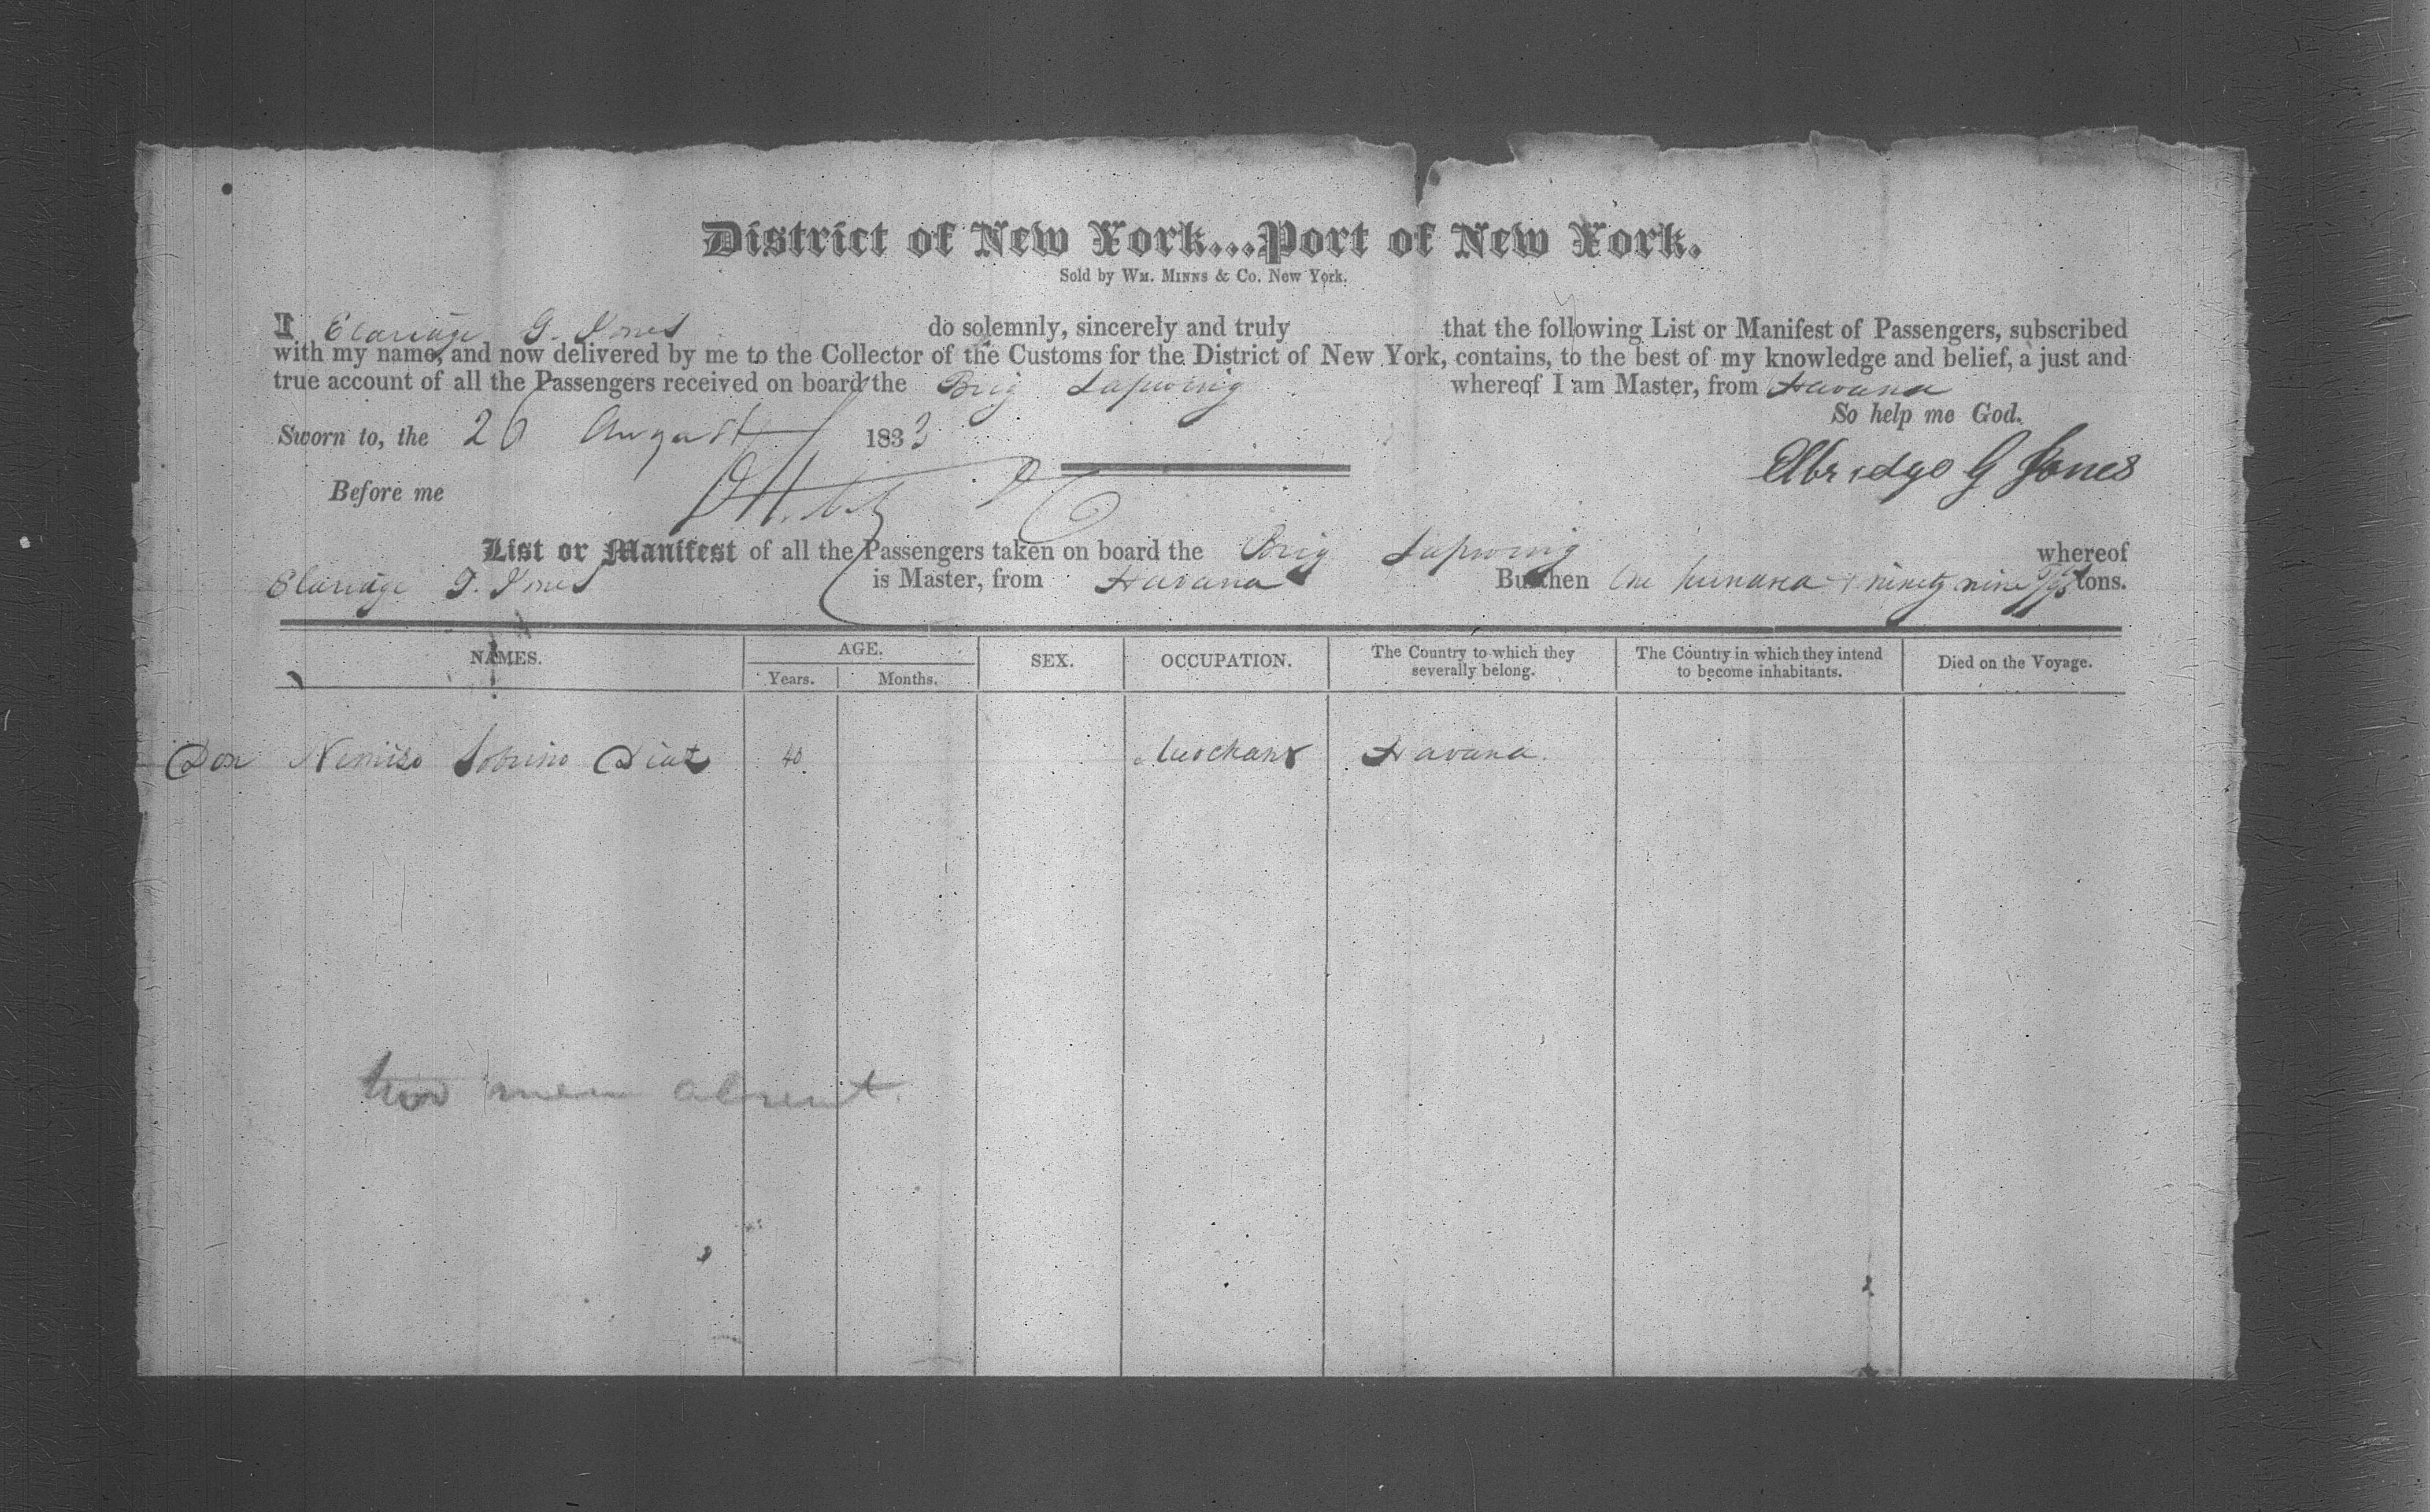 District of New York...Port of New York.
Sold by WM. MINNS & Co. New York.
I Elbridge G. Jones do solemnly, sincerely and truly that the following List or Manifest of Passengers, subscribed
with my name, and now delivered by me to the Collector of the Customs for the District of New York, contains, to the best of my knowledge and belief, a just and
true account of all the Passengers received on board the Brig Lapwing whereof I am Master, from Havana
So help me God.
Sworn to, the 26 August 1833
Elbridge G Jones
Before me
List or Manifest of all the Passengers taken on board the Brig Lapwing whereof
Elbridge G. Jones is Master, from Havana Burthen One hundred & ninety nine tons.
NAMES. AGE. SEX. OCCUPATION. The Country to which they severally belong. The Country in which they intend to become inhabitants. Died on the Voyage.
Years. Months.
Don Sobrino Diaz 40 Merchant Havana.
two men absent.